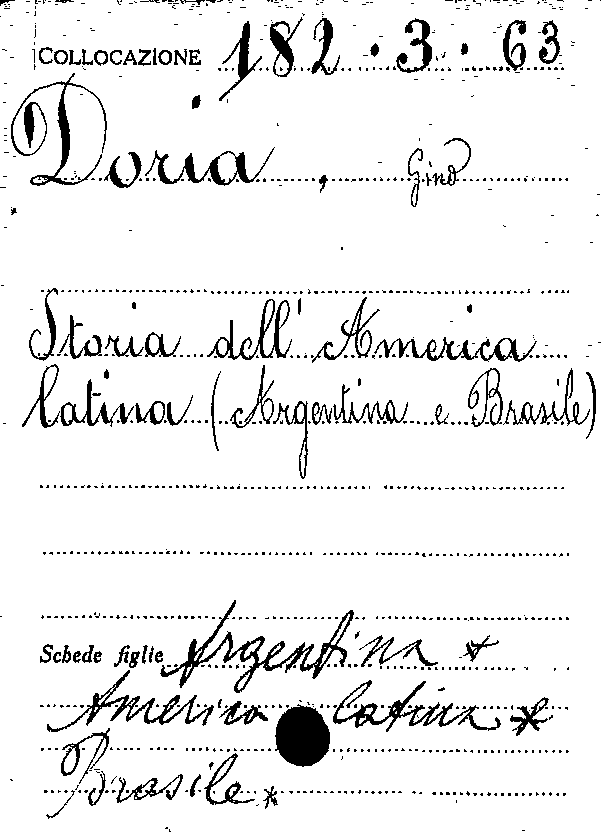 COLLOCAZIONE 182.3.63
Doria, Gino
Storia dell'America
latina (Argentina e Brasile)
Schede figlie Argentina *
America latina *
Brasile *